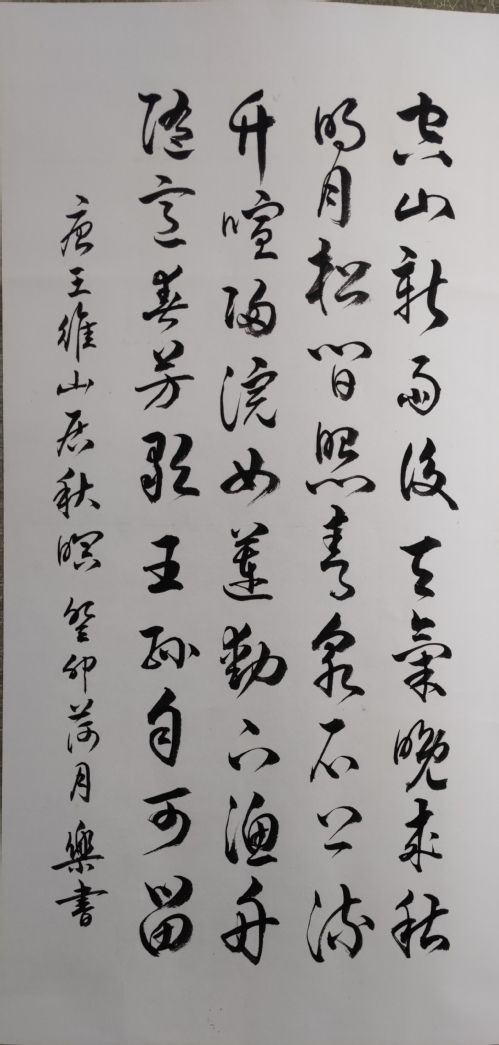 空山新雨後天氣晚来秋
明月松间照青泉石上流
竹喧歸浣女蓮動下漁舟
随意春芳歇王孫自可留
唐王維山居秋暝 癸卯荷月 樂書